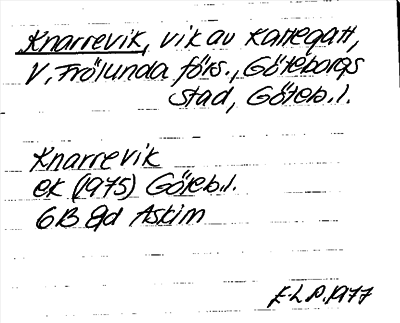 Knarrevik, vik av Kattegatt,
V. Frölunda förs., Göteborgs
stad, Göteb. l.
Knarrevik
ek (1975) Göteb. l.
6B 8d Askim
1977